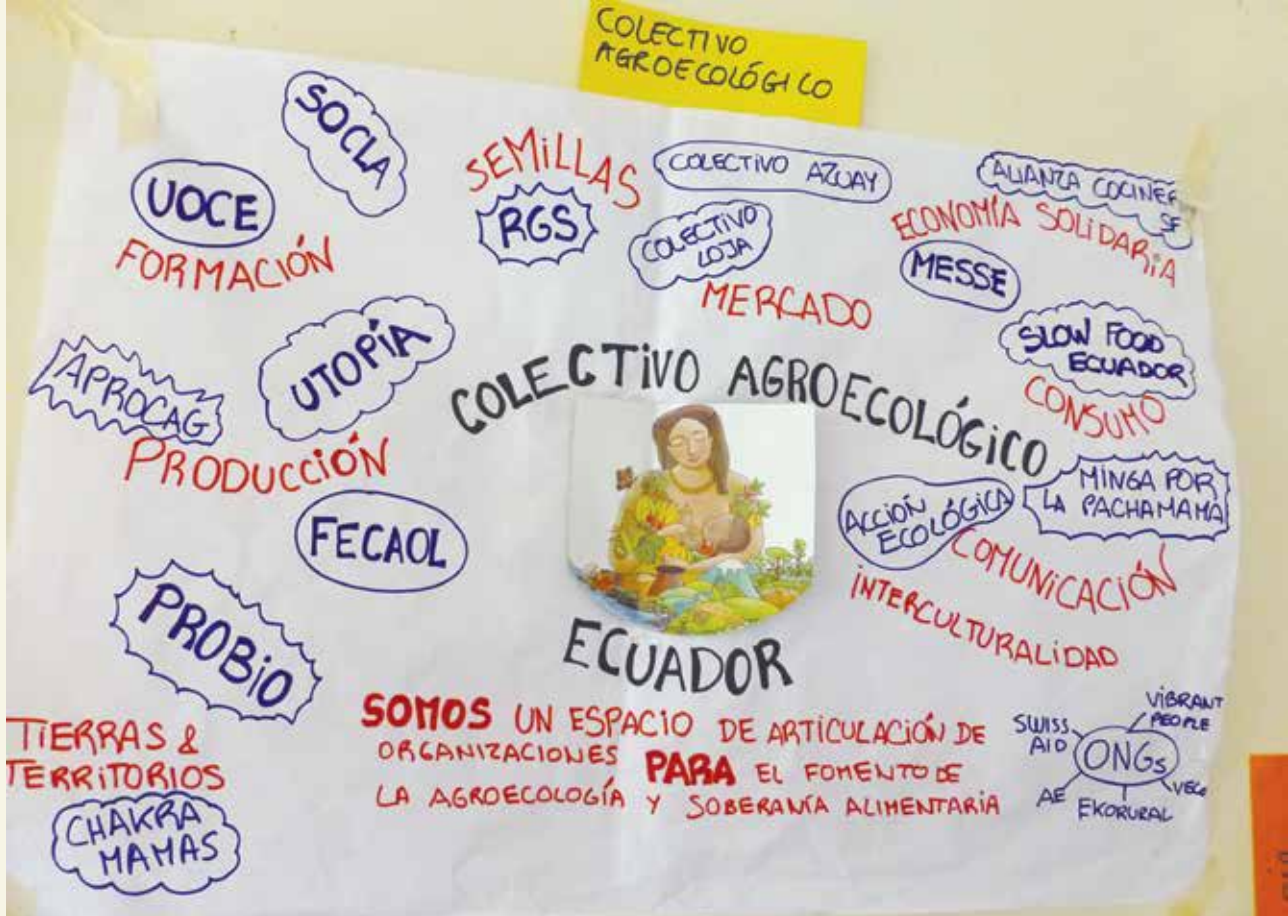 COLECTIVO
AGROECOLÓGICO
SOCLA
UOCE
FORMACIÓN
SEMILLAS
RGS
COLECTIVO AZUAY
COLECTIVO
LOJA
MERCADO
ALIANZA COCINER
SF
ECONOMÍA SOLIDARIA
MESSE
SLOW FOOD
ECUADOR
CONSUMO
APROCAG
UTOPÍA
PRODUCCIÓN
FECAOL
PROBIO
COLECTIVO AGROECOLÓGICO
ECUADOR
ACCIÓN
ECOLÓGICA
MINGA POR
LA PACHAMAMA
COMUNICACIÓN
INTERCULTURALIDAD
TIERRAS &
TERRITORIOS
CHAKRA
MAMAS
SOMOS UN ESPACIO DE ARTICULACIÓN DE
ORGANIZACIONES PARA EL FOMENTO DE
LA AGROECOLOGÍA Y SOBERANÍA ALIMENTARIA
VIBRANT
PEOPLE
SWISS
AID
ONGs
VECO
AE
EKORURAL